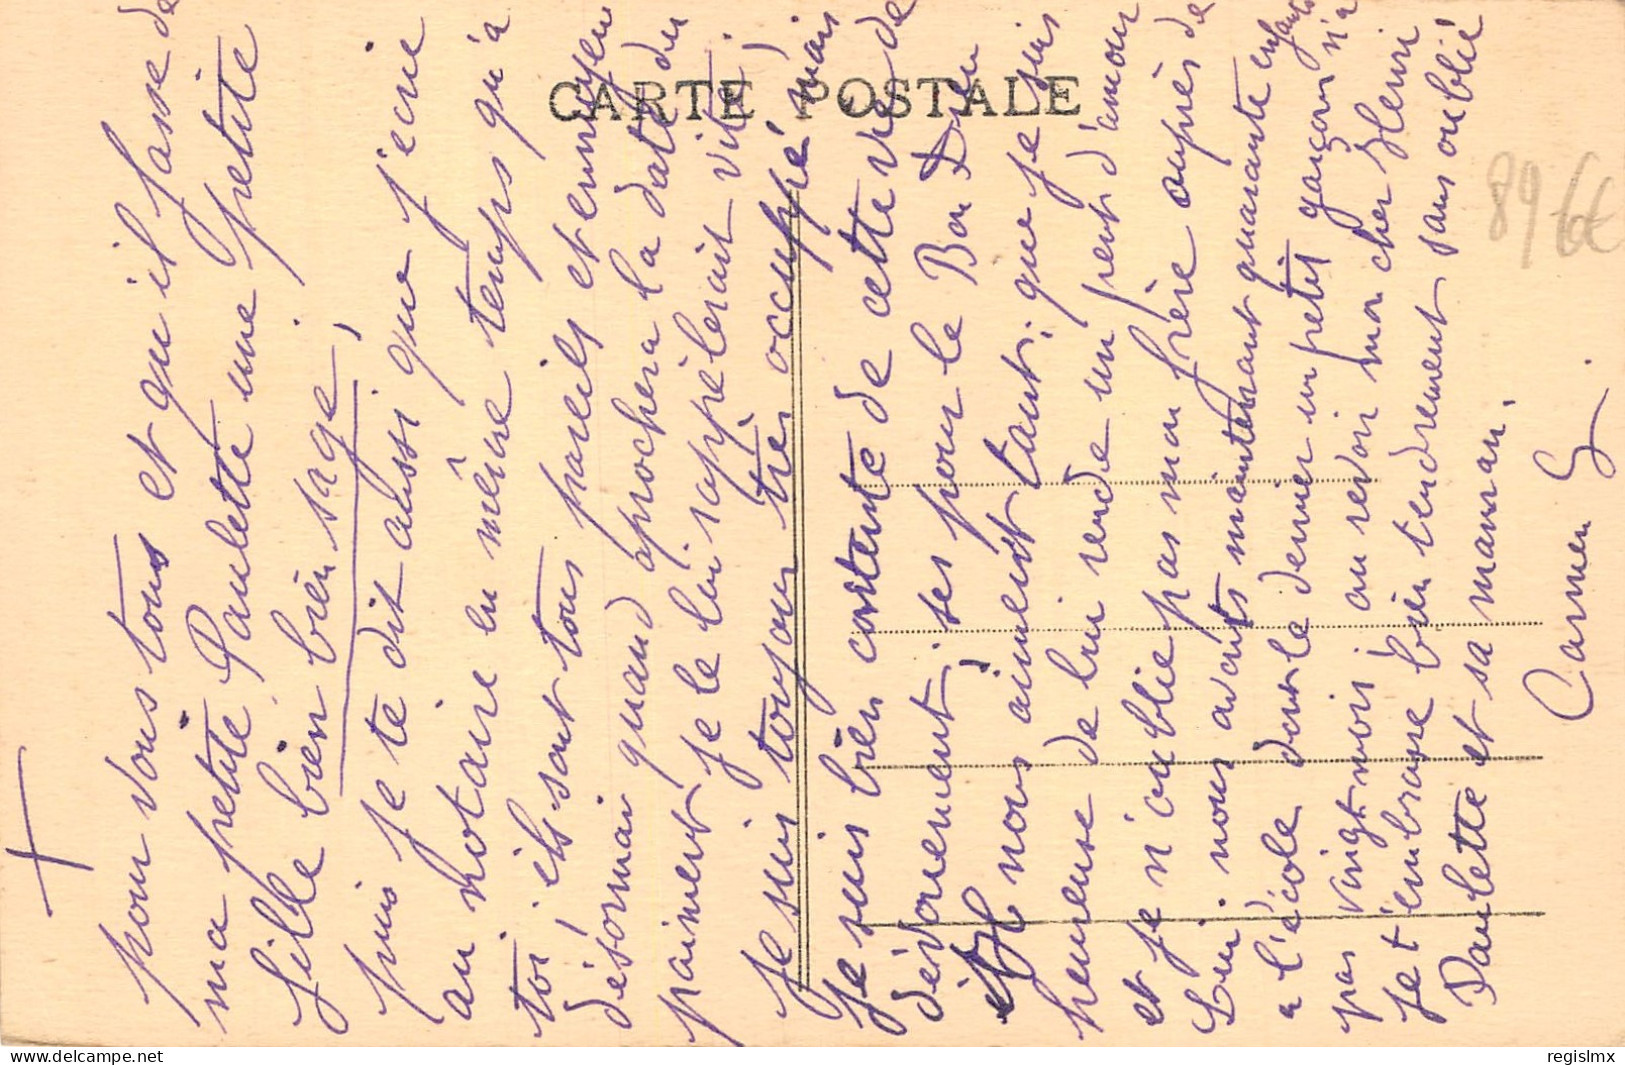 CARTE POSTALE
pour vous tous et qu'il fasse de
ma petite Paulette une petite
fille bien bien sage,
puis je te dit aussi que j'ecrie
au Notaire en même temps qu'a
toi, ils sont tous pareils et
désormai quand aprochera la date du
paiment je le lui rappèlerait vite;
Je suis toujour très occuppé mais
Je suis bien contente de cette vie de
dévouement, ses pour le Bon Dieu
et Il nous aiment tant; que je suis
heureuse de lui rende un peut d'amour
et je n'oublie pas mon frère auprès de
Lui. nous avons maintenant quarante enfants
a l'école dont le dernier un petit garçon n'a
pas vingt mois; au revoir mon cher Henri
Je t'embrasse bien tendrement sans oublié
Paulette et sa maman.
Carmen
89 6€
regislmx